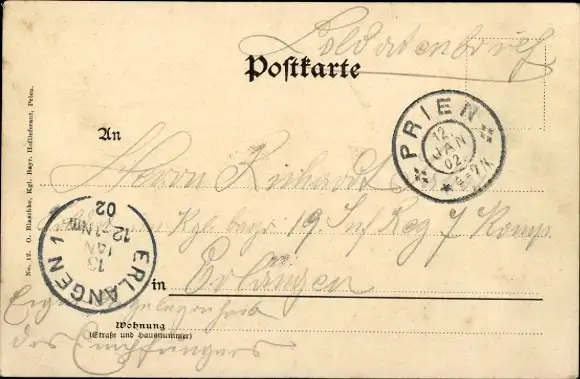 Soldatenbrief
Postkarte
PRIEN
12.
JAN
02
6-7 N
An
Herrn Richardt
Kgl bayr. 19. Inf Reg 7 Komp.
in Erlangen
ERLANGEN 1
13
JAN
12-1Nm
02
Eigene Angelegenheit
des Empfängers
Wohnung
(Straße und Hausnummer)
No. 12. O. Blaschke, Kgl. Bayr. Hoflieferant, Prien.